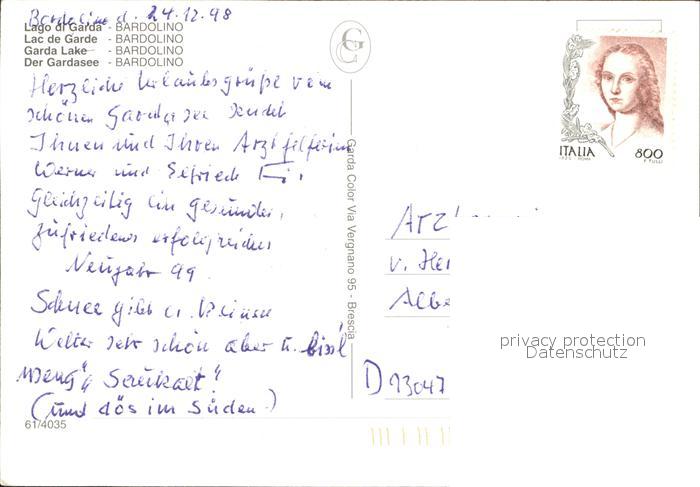 Bardolino d. 24.12.98
Lago di Garda - BARDOLINO
Lac de Garde - BARDOLINO
Garda Lake - BARDOLINO
Der Gardasee - BARDOLINO
Herzliche Urlaubsgrüße vom
schönen Gardasee sendet
Ihnen und Ihren Arzthelferinn
Werner und
Gleichzeitig ein gesundes,
zufriedens erfolgreiches
Neujahr 99.
Schnee gibt es keinen
Wetter sehr schön aber u. bissl
weng "Saukalt"
(und dös im Süden)
61/4035
GC
Garda Color Via Vergnano 95 - Brescia
ITALIA 800
Arz
v. Her
Albe
D 93047
privacy protection
Datenschutz